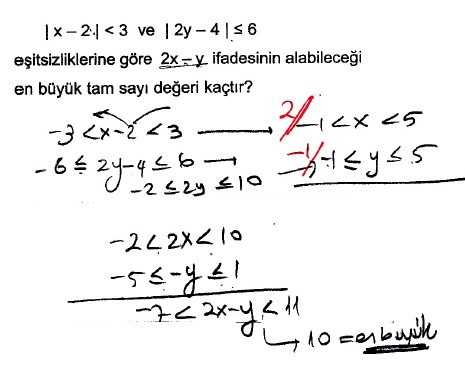 | x – 2 | < 3 ve | 2y – 4 | ≤ 6
eşitsizliklerine göre 2x – y ifadesinin alabileceği
en büyük tam sayı değeri kaçtır?
-3 < x-2 < 3 → 2/ -1 < x < 5
-6 ≤ 2y-4 ≤ 6 → -1/ -1 ≤ y ≤ 5
-2 ≤ 2y ≤ 10
-2 < 2x < 10
-5 ≤ -y ≤ 1
-7 < 2x-y < 11
→ 10 = en büyük